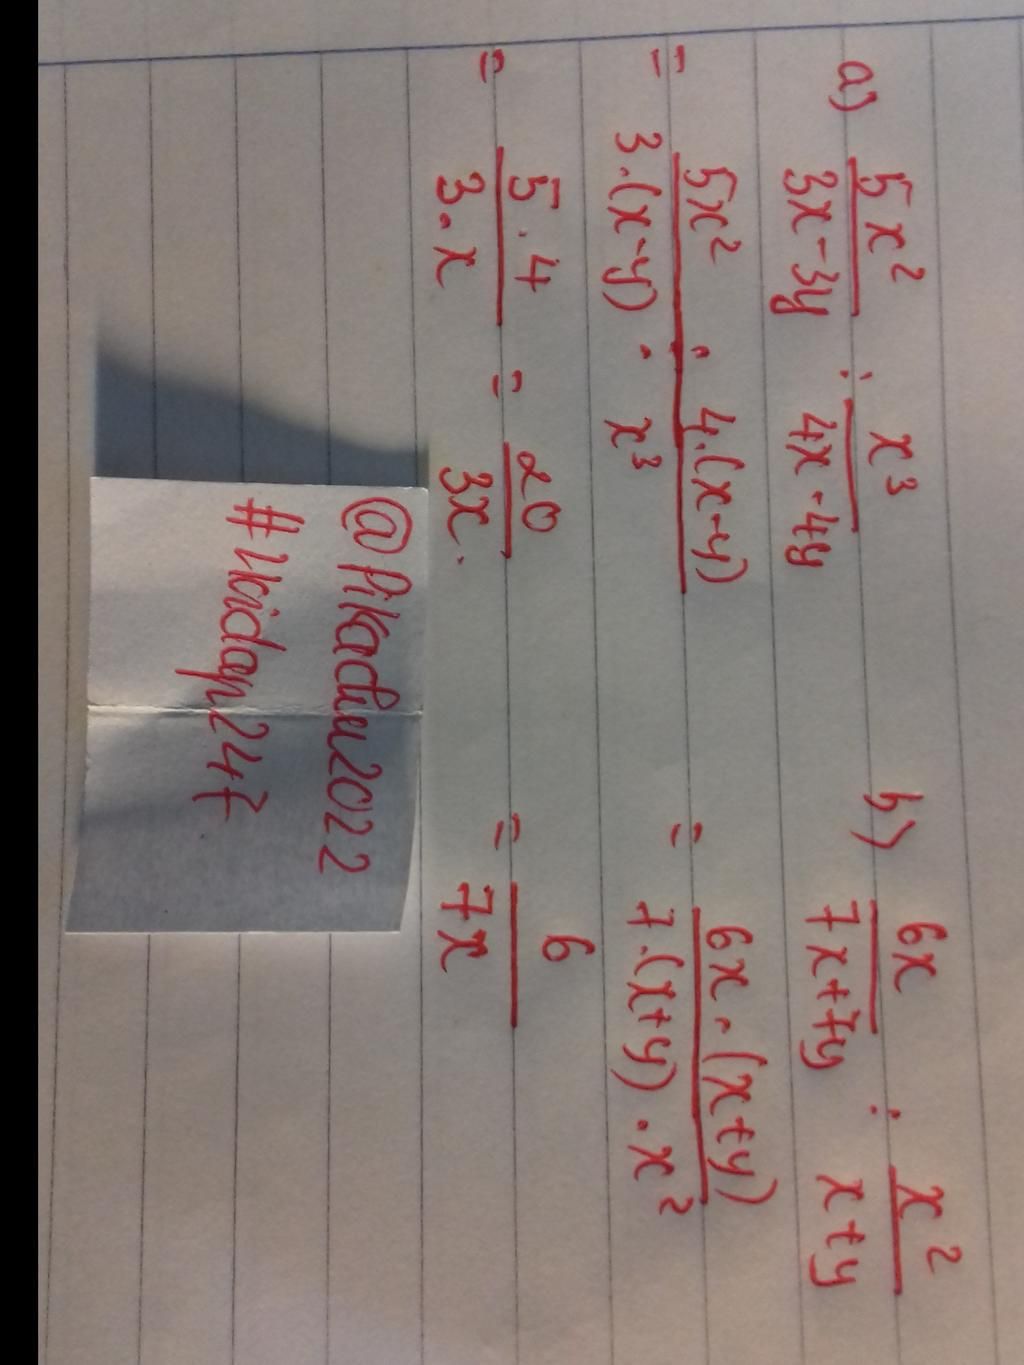 a) 5x²/(3x-3y) : x³/(4x-4y)
= (5x² . 4.(x-y))/(3.(x-y) . x³)
= (5.4)/(3.x) = 20/3x.
b) 6x/(7x+7y) : x²/(x+y)
= (6x.(x+y))/(7.(x+y).x²)
= 6/7x
@Pikachu2022